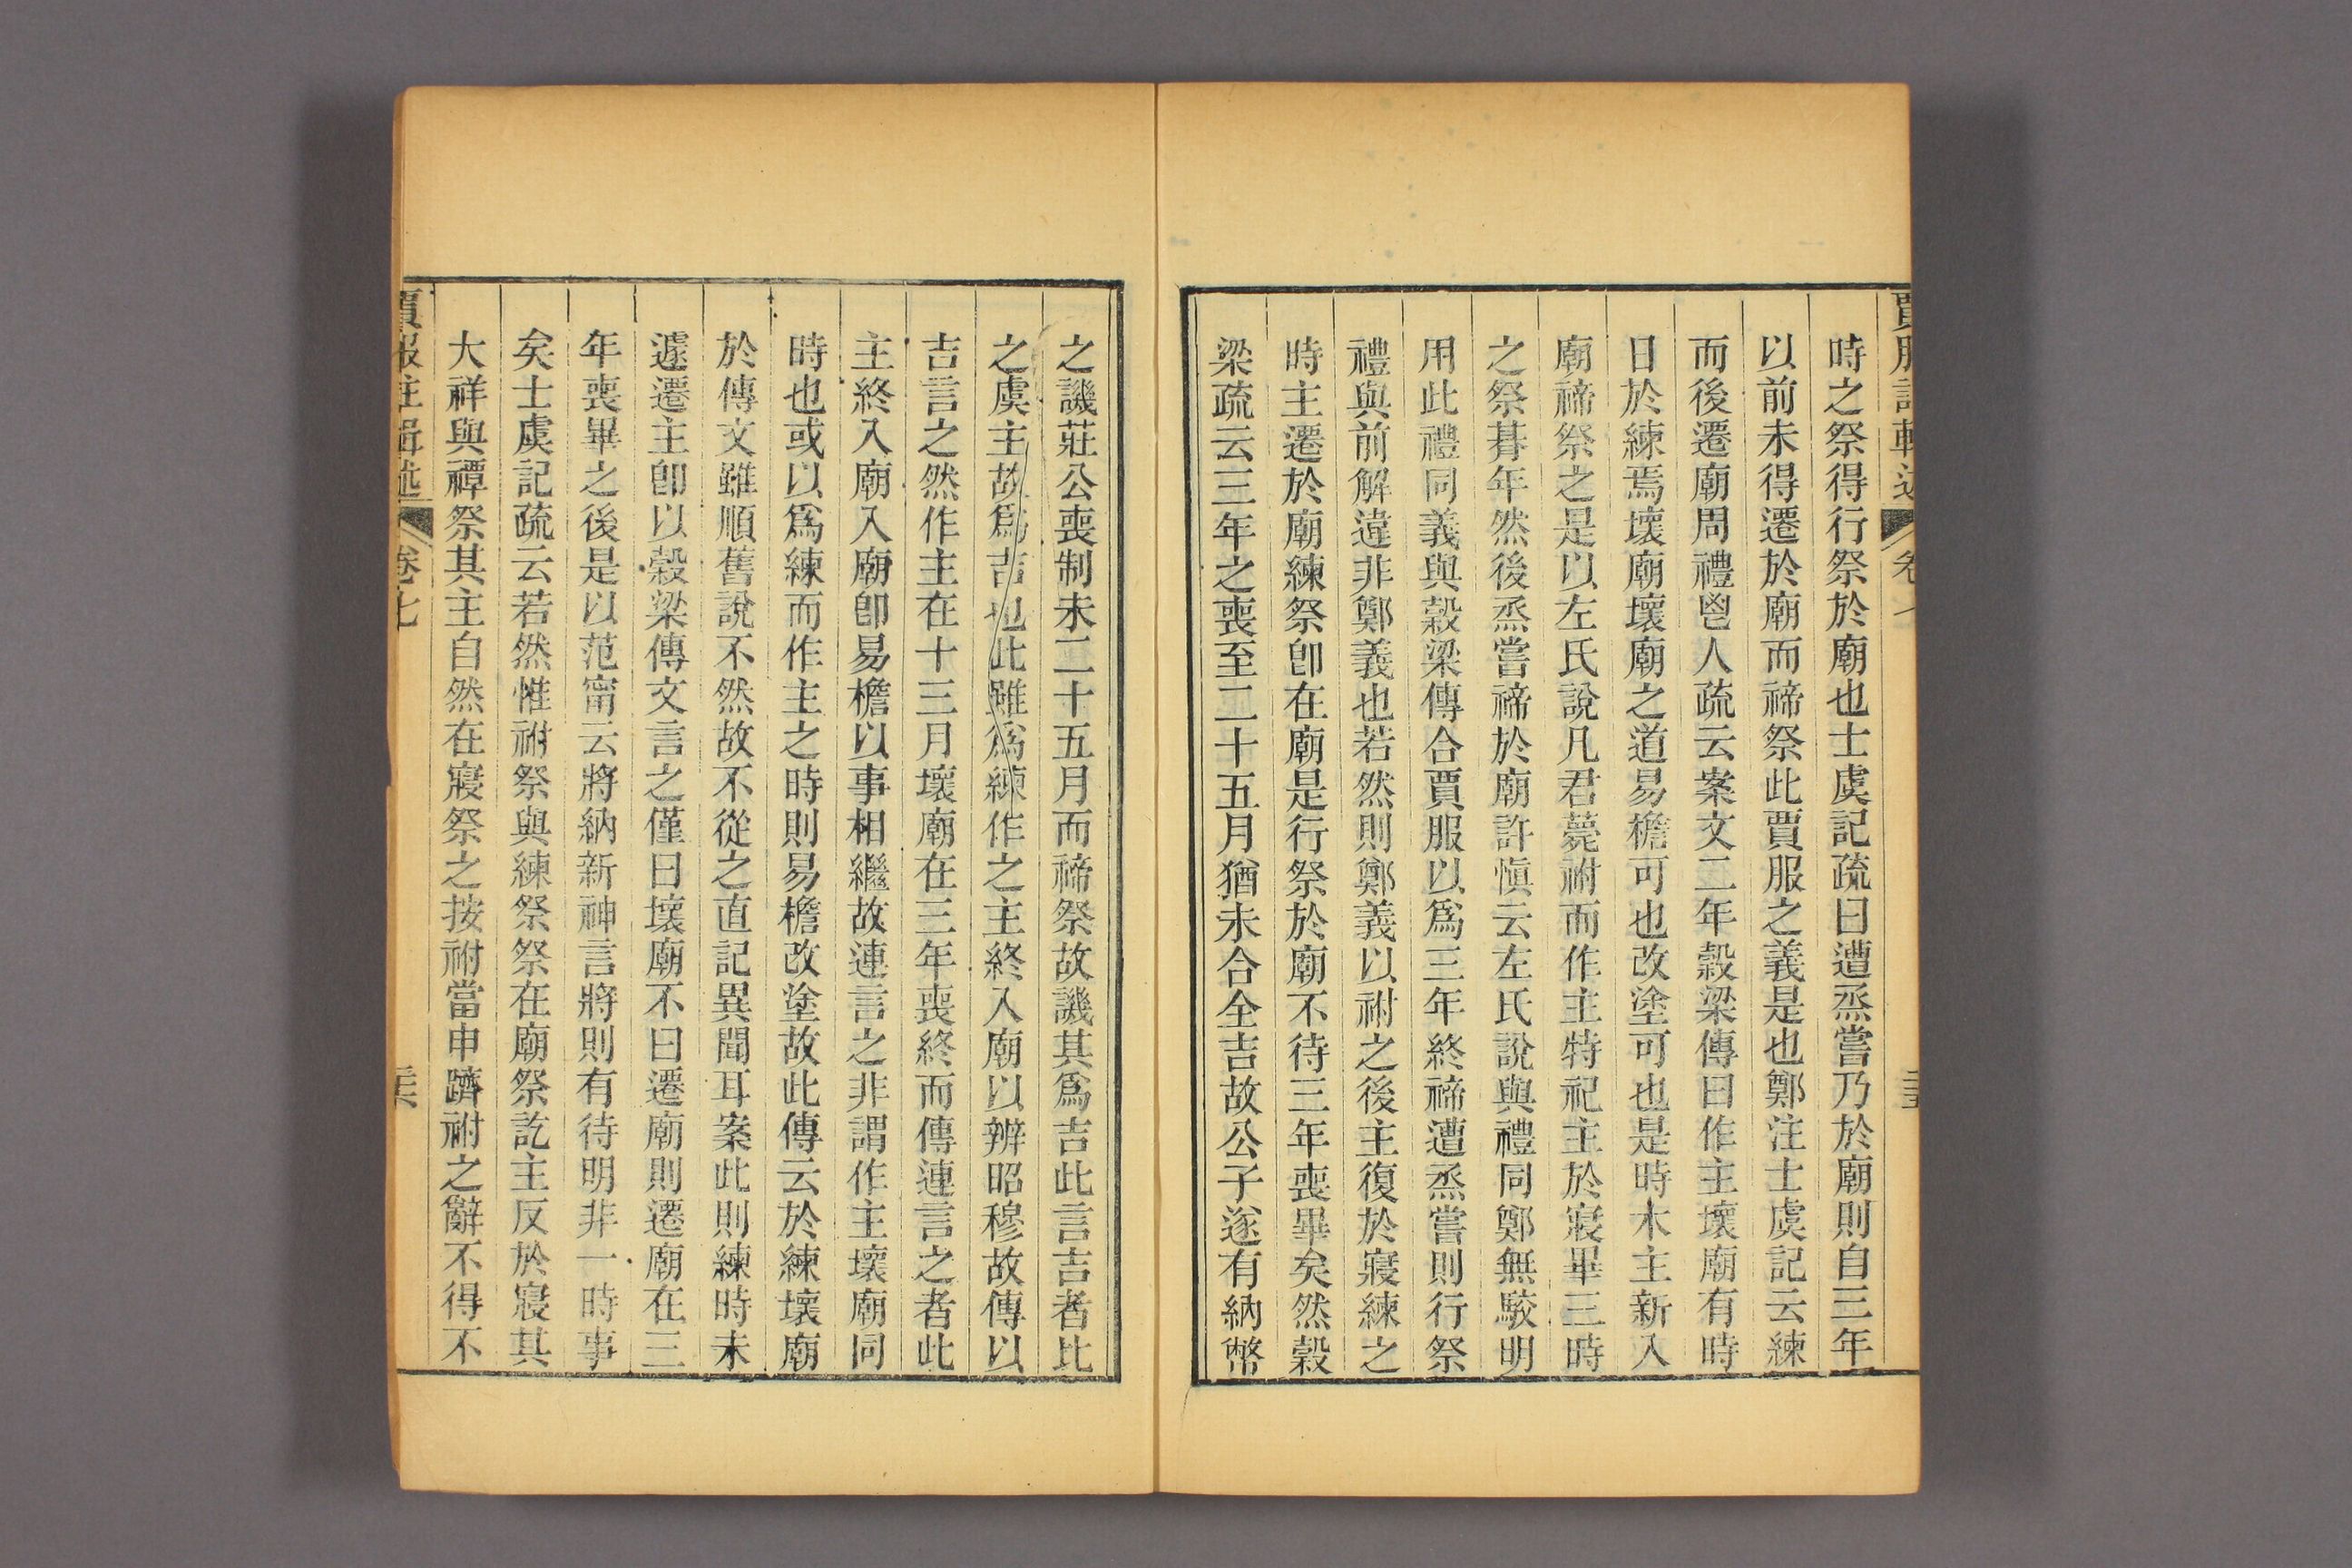 時之祭得行祭於廟也士虞記疏曰遭烝嘗乃於廟則自三年
以前未得遷於廟而禘祭此賈服之義是也鄭注士虞記云練
而後遷廟周禮鬯人疏云案文二年穀梁傳曰作主壞廟有時
日於練焉壞廟壞廟之道易檐可也改塗可也是時木主新入
廟禘祭之是以左氏說凡君薨祔而作主特祀主於寢畢三時
之祭朞年然後烝嘗禘於廟許慎云左氏說與禮同鄭無駮明
用此禮同義與穀梁傳合賈服以爲三年終禘遭烝嘗則行祭
禮與前解違非鄭義也若然則鄭義以祔之後主復於寢練之
時主遷於廟練祭卽在廟是行祭於廟不待三年喪畢矣然穀
梁疏云三年之喪至二十五月猶未合全吉故公子遂有納幣
之譏莊公喪制未二十五月而禘祭故譏其爲吉此言吉者比
之虞主故爲吉也此雖爲練作之主終入廟以辨昭穆故傳以
吉言之然作主在十三月壞廟在三年喪終而傳連言之者此
主終入廟入廟卽易檐以事相繼故連言之非謂作主壞廟同
時也或以爲練而作主之時則易檐改塗故此傳云於練壞廟
於傳文雖順舊說不然故不從之直記異聞耳案此則練時未
遽遷主卽以穀梁傳文言之僅曰壞廟不曰遷廟則遷廟在三
年喪畢之後是以范甯云將納新神言將則有待明非一時事
矣士虞記疏云若然惟祔祭與練祭祭在廟祭訖主反於寢其
大祥與禫祭其主自然在寢祭之按祔當申躋祔之辭不得不
賈服注輯述
卷七